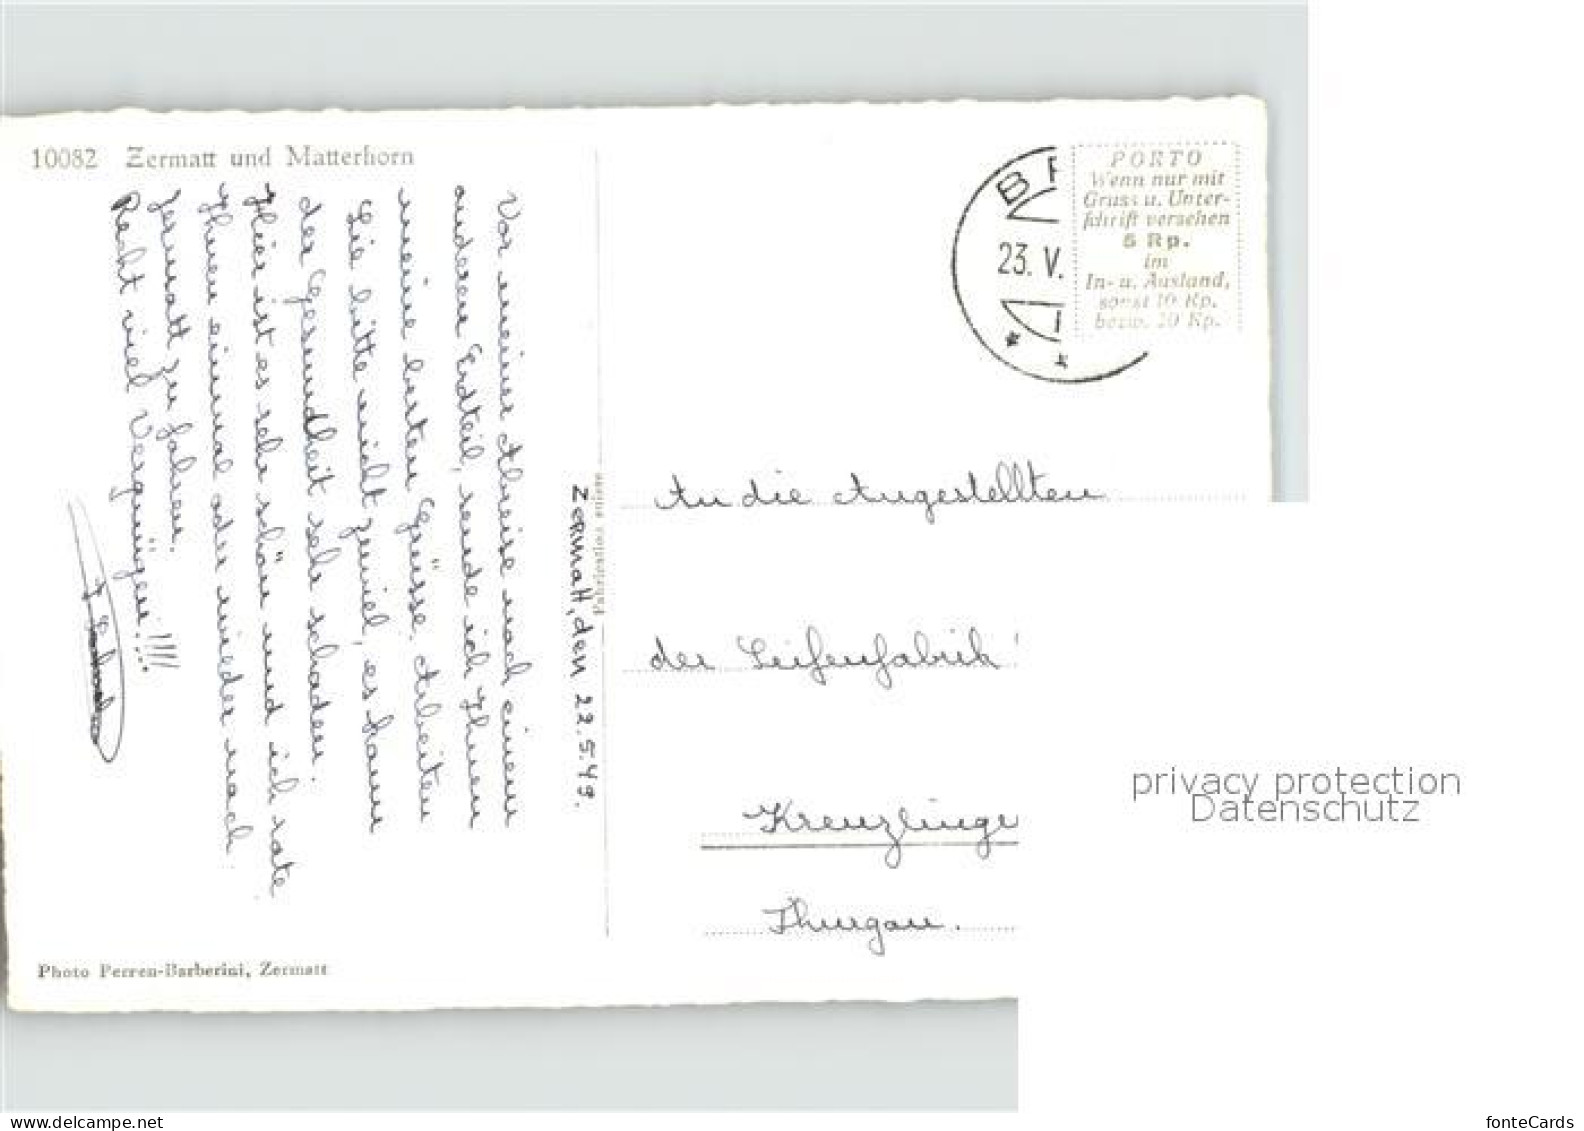 10082 Zermatt und Matterhorn
Zermatt, den 22.5.49.
Vor meiner Abreise nach einem
anderen Erdteil, sende ich Ihnen
meine besten Grüsse. Arbeiten
Sie bitte nicht zuviel, es kann
der Gesundheit sehr schaden.
Hier ist es sehr schön und ich rate
Ihnen einmal oder wieder nach
Zermatt zu fahren.
Recht viel Vergnügen!!!!
Photo Perren-Barberini, Zermatt
Fabrication suisse
23. V.
PORTO
Wenn nur mit
Gruss u. Unter-
schrift versehen
5 Rp.
im
In- u. Ausland,
sonst 10 Rp.
bezw. 20 Rp.
An die Angestellten
der Seifenfabrik
Kreuzlinge
Thurgau.
privacy protection
Datenschutz
www.delcampe.net
fonteCards